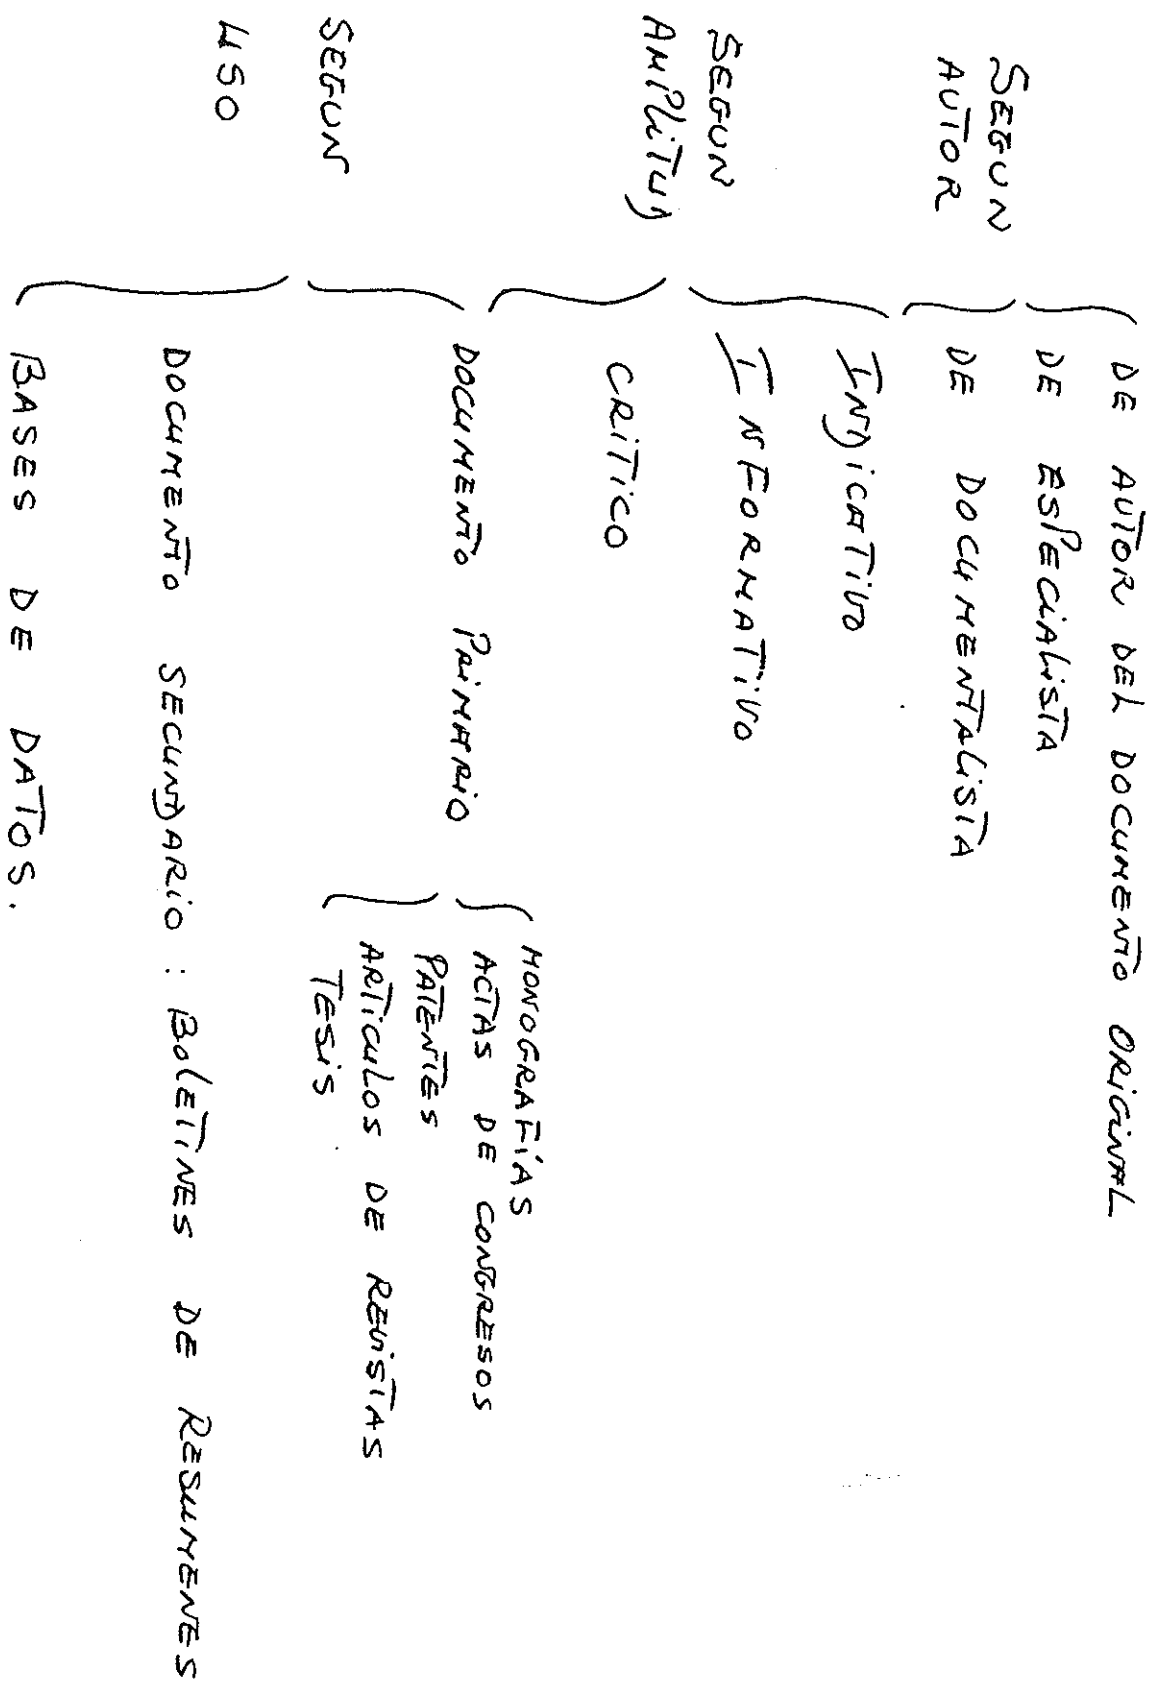 SEGUN
AUTOR
DE AUTOR DEL DOCUMENTO ORIGINAL
DE ESPECIALISTA
DE DOCUMENTALISTA
SEGUN
AMPLITUD
INDICATIVO
INFORMATIVO
CRITICO
SEGUN
USO
DOCUMENTO PRIMARIO
MONOGRAFÍAS
ACTAS DE CONGRESOS
PATENTES
ARTICULOS DE REVISTAS
TESIS
DOCUMENTO SECUNDARIO: BOLETINES DE RESUMENES
BASES DE DATOS.